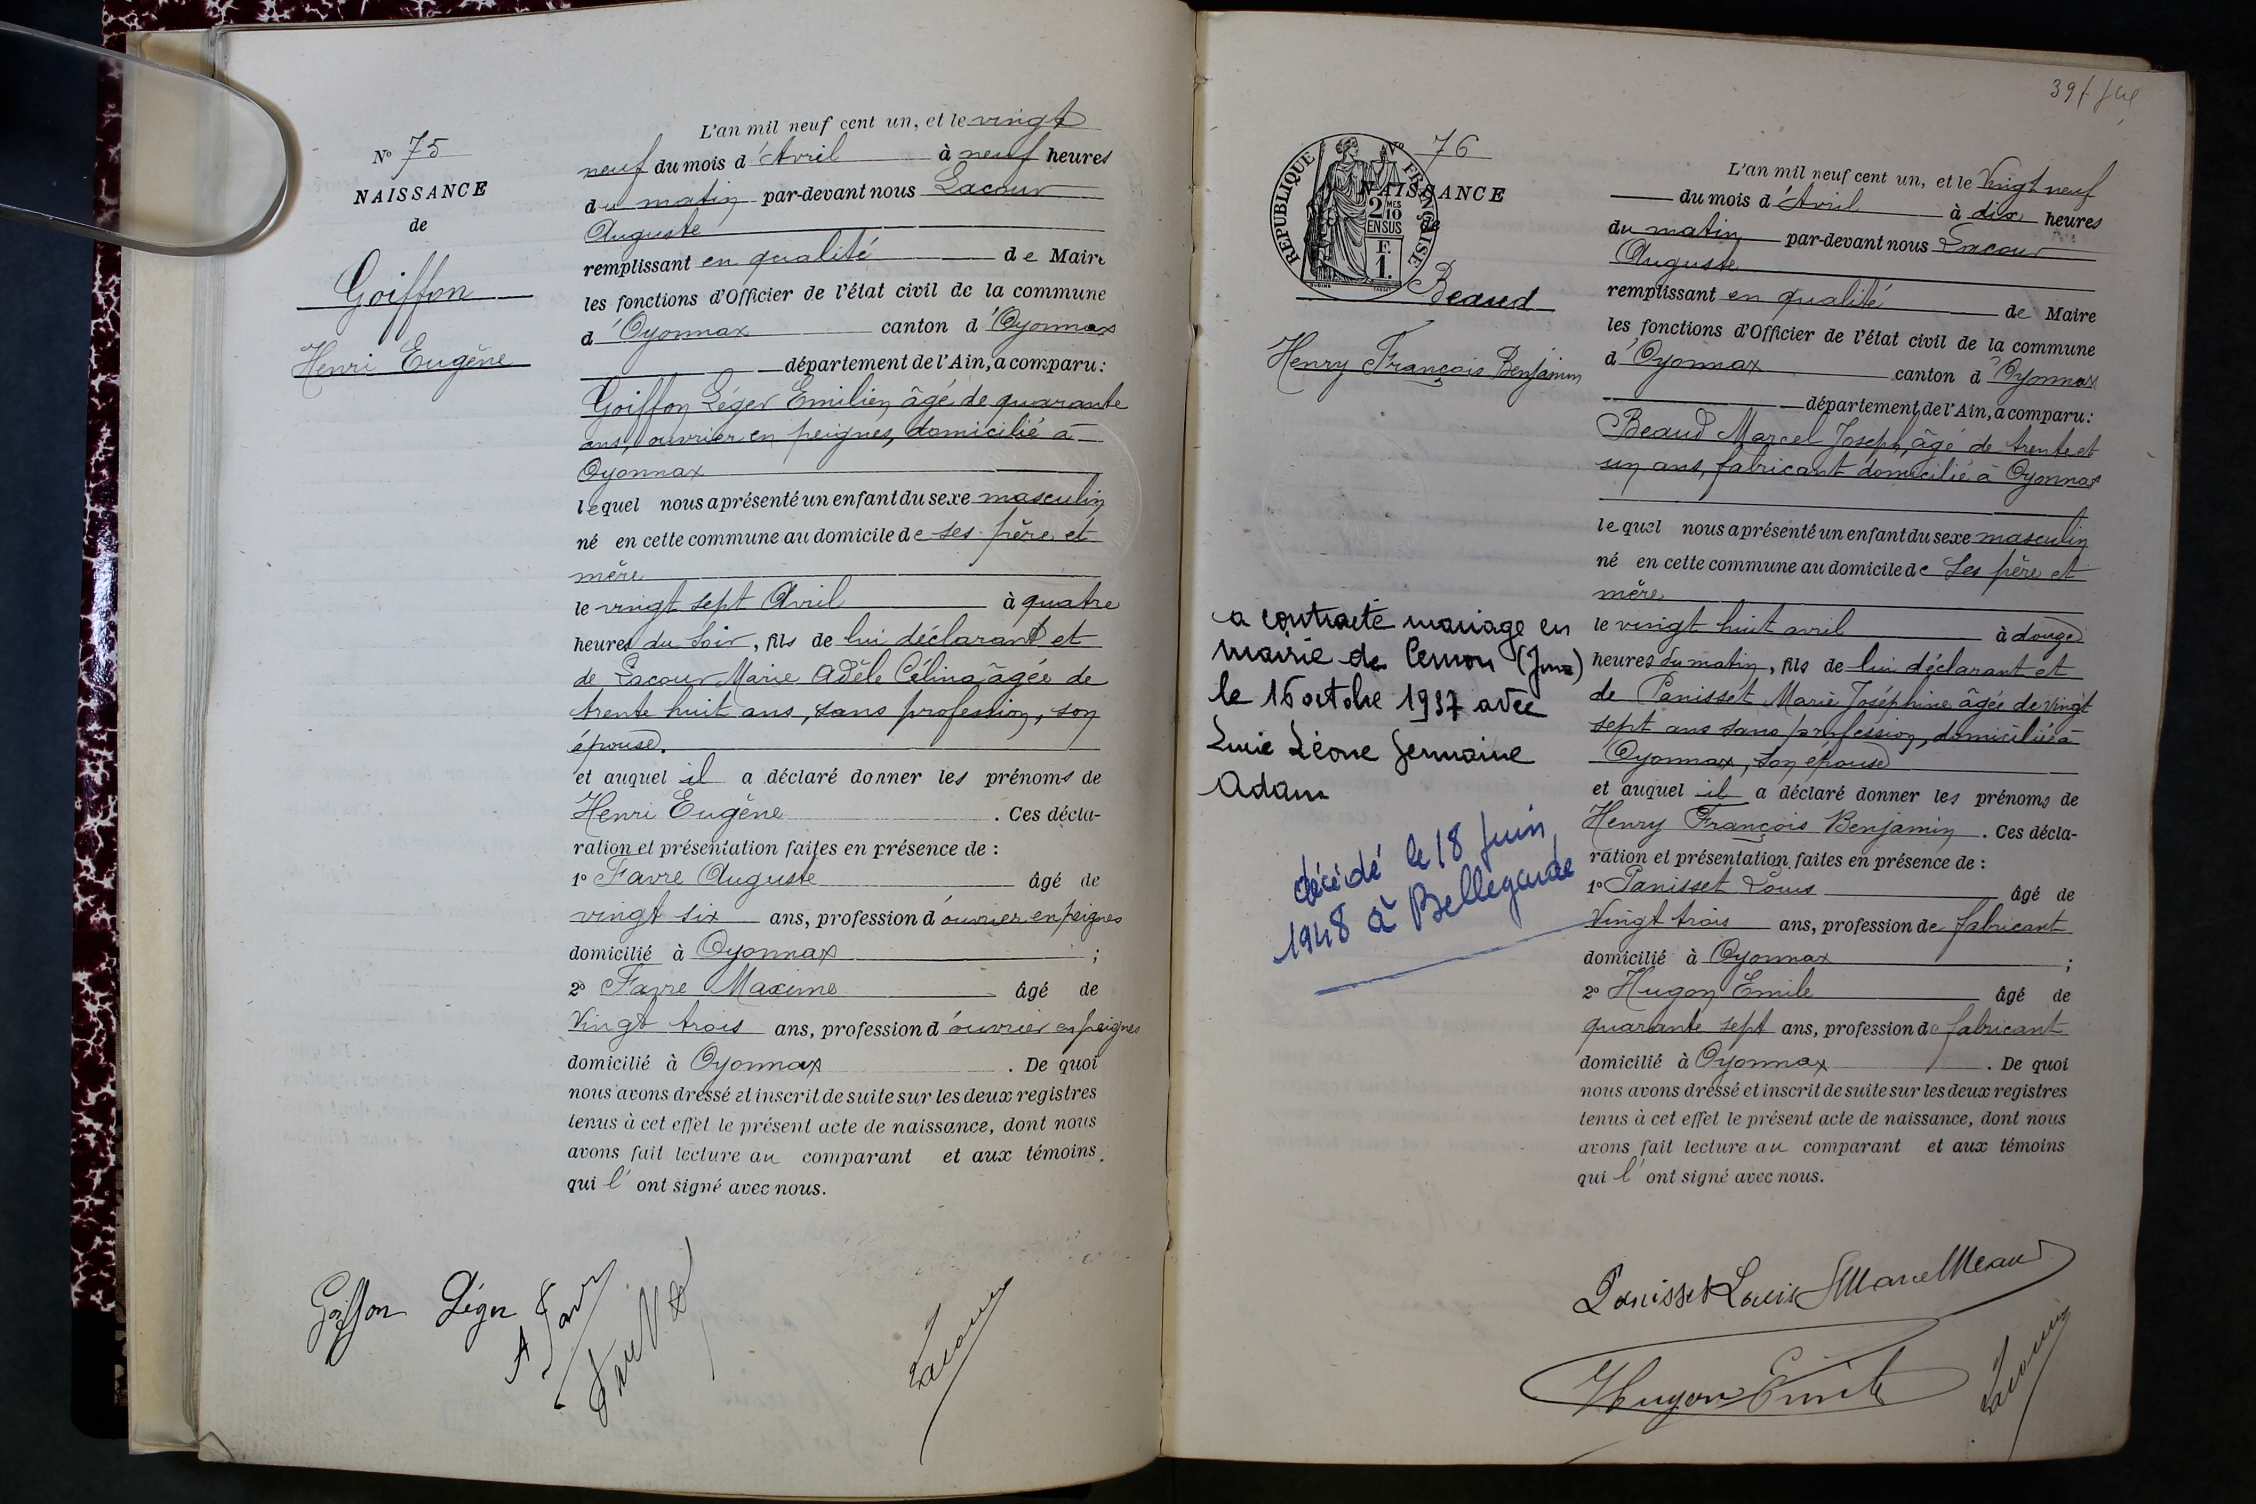 N° 75
NAISSANCE
de
Goiffon
Henri Eugène
L'an mil neuf cent un, et le vingt
neuf du mois d'Avril à neuf heures
du matin par-devant nous Lacour
Auguste
remplissant en qualité de Maire
les fonctions d'Officier de l'état civil de la commune
d'Oyonnax canton d'Oyonnax
département de l'Ain, a comparu :
Goiffon Léger Emilien âgé de quarante
ans, ouvrier en peignes, domicilié à
Oyonnax
lequel nous a présenté un enfant du sexe masculin
né en cette commune au domicile de ses père et
mère
le vingt sept Avril à quatre
heures du soir, fils de lui déclarant et
de Lacour Marie Adèle Célina âgée de
trente huit ans, sans profession, son
épouse.
et auquel il a déclaré donner les prénoms de
Henri Eugène . Ces décla-
ration et présentation faites en présence de :
1° Favre Auguste âgé de
vingt six ans, profession d'ouvrier en peignes
domicilié à Oyonnax ;
2° Favre Maxime âgé de
Vingt trois ans, profession d'ouvrier en peignes
domicilié à Oyonnax . De quoi
nous avons dressé et inscrit de suite sur les deux registres
tenus à cet effet le présent acte de naissance, dont nous
avons fait lecture au comparant et aux témoins.
qui l'ont signé avec nous.
Goiffon Léger
A Favre
Lacour
N° 76
NAISSANCE
de
RÉPUBLIQUE FRANÇAISE
2 MES
10
EN SUS
F.
1.
Beaud
Henry François Benjamin
a contracté mariage en
mairie de Cernon (Jura)
le 16 octobre 1937 avec
Lucie Léone Germaine
Adam
décédé le 18 Juin
1948 à Bellegarde
L'an mil neuf cent un, et le Vingt neuf
du mois d'Avril à dix heures
du matin par-devant nous Lacour
Auguste
remplissant en qualité de Maire
les fonctions d'Officier de l'état civil de la commune
d'Oyonnax canton d'Oyonnax
département de l'Ain, a comparu :
Beaud Marcel Joseph, âgé de trente et
un ans, fabricant domicilié à Oyonnax
lequel nous a présenté un enfant du sexe masculin
né en cette commune au domicile de ses père et
mère
le vingt huit avril à douze
heures du matin, fils de lui déclarant et
de Panisset Marie Joséphine âgée de vingt
sept ans sans profession, domiciliée à
Oyonnax, son épouse
et auquel il a déclaré donner les prénoms de
Henry François Benjamin . Ces décla-
ration et présentation faites en présence de :
1° Panisset Louis âgé de
Vingt trois ans, profession de fabricant
domicilié à Oyonnax ;
2° Hugon Emile âgé de
quarante sept ans, profession de fabricant
domicilié à Oyonnax . De quoi
nous avons dressé et inscrit de suite sur les deux registres
tenus à cet effet le présent acte de naissance, dont nous
avons fait lecture au comparant et aux témoins
qui l'ont signé avec nous.
Panisset Louis
Hugon Emile
Lacour